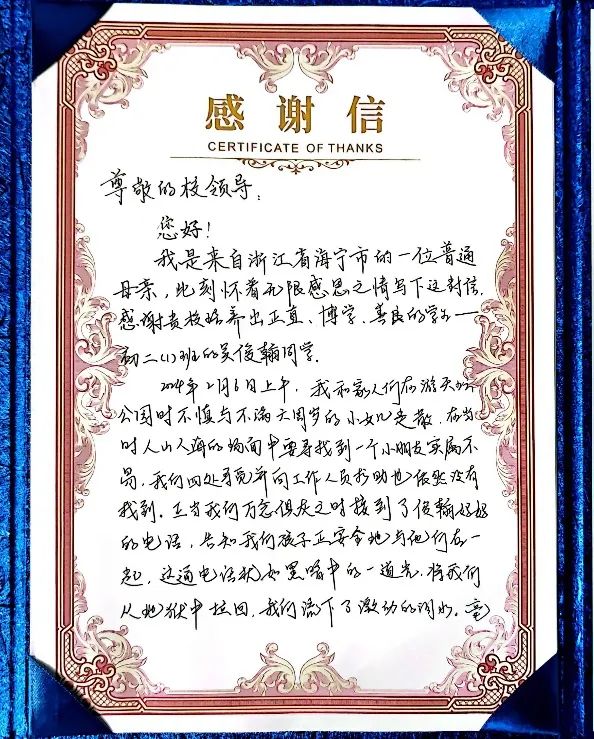 感谢信
CERTIFICATE OF THANKS
尊敬的校领导：
您好！
我是来自浙江省海宁市的一位普通
母亲，此刻怀着无限感恩之情写下这封信．
感谢贵校培养出正直、博学、善良的学子——
初二（1）班的吴俊翰同学．
2024年2月6日上午，我和家人们在游天
公园时不慎与不满六周岁的小女儿走散．在当
时人山人海的场面中要寻找到一个小朋友实属不
易，我们四处寻觅并向工作人员求助也依然没有
找到．正当我们万念俱灰之时接到了俊翰妈妈
的电话，告知我们孩子正安全地与他们在一
起．这通电话犹如黑暗中的一道光．将我们
从地狱中拉回．我们流下了激动的泪水．